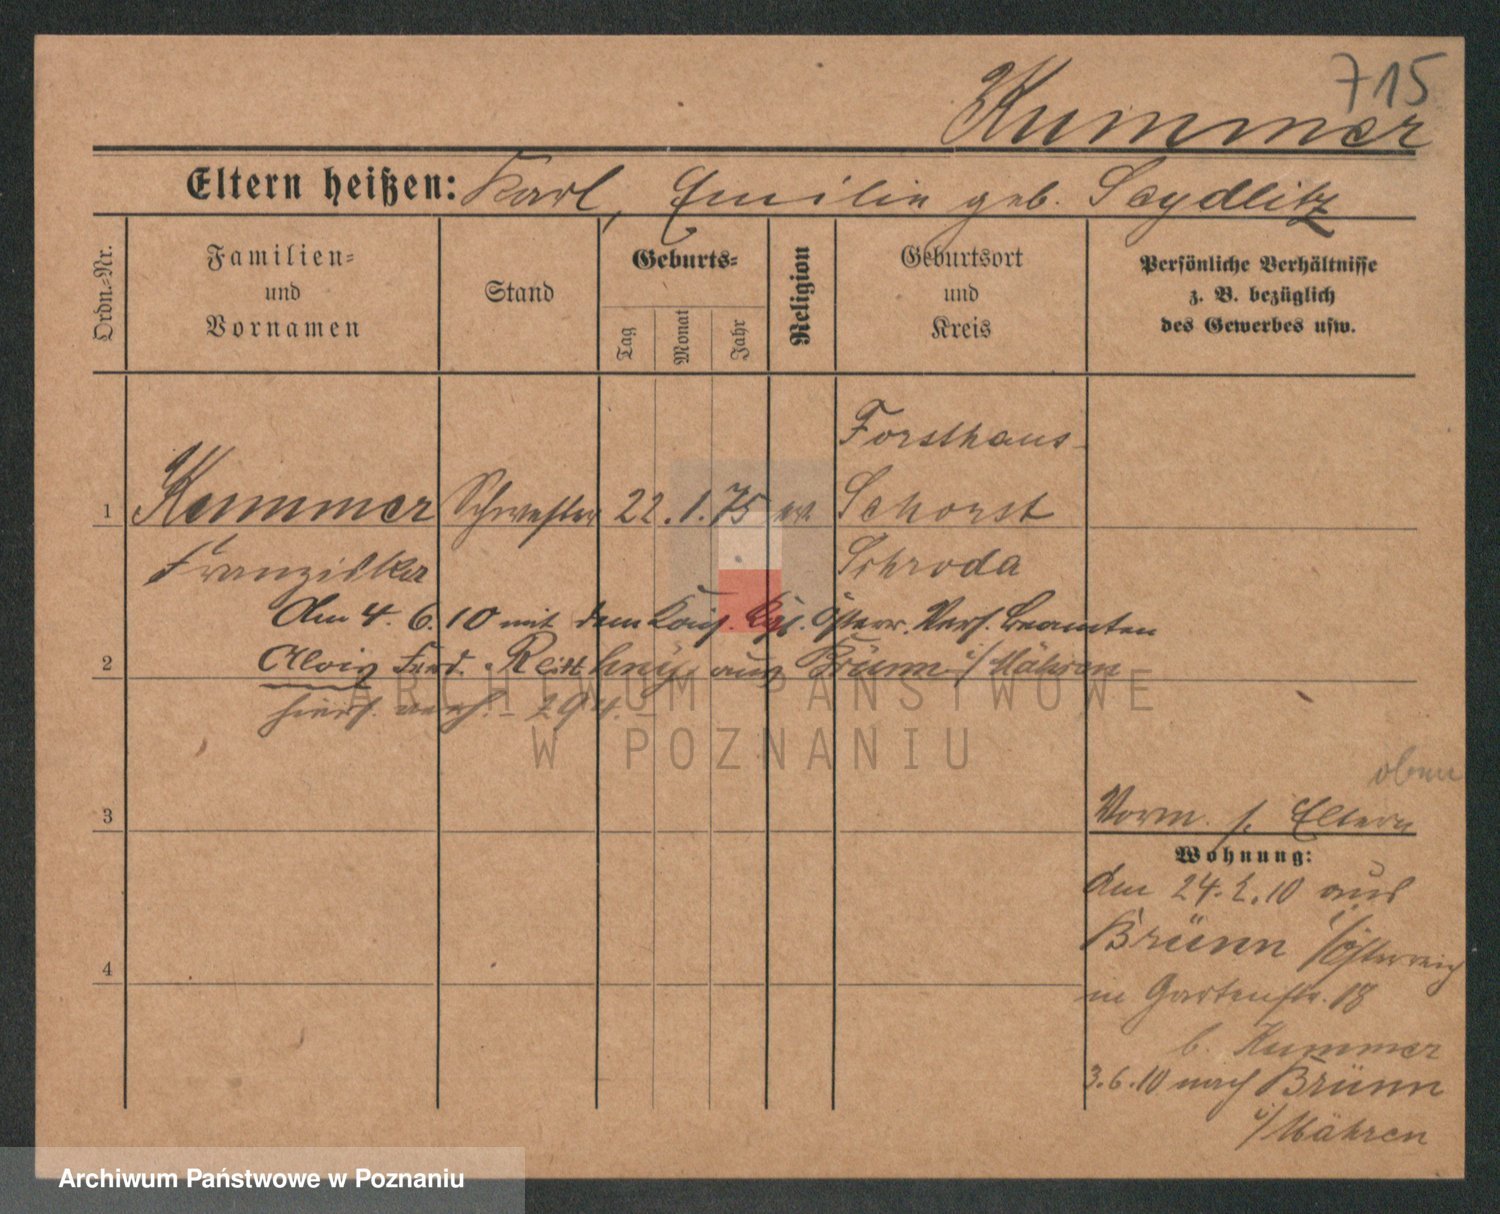 715
Kummer
Eltern heißen: Karl, Emilie geb. Seydlitz
Ordn.=Nr.
Familien=
und
Vornamen
Stand
Geburts=
Tag
Monat
Jahr
Religion
Geburtsort
und
Kreis
Persönliche Verhältnisse
z. B. bezüglich
des Gewerbes usw.
Forsthaus
1 Kummer Schwester 22. 1. 75 ev. Schorst
Franziska Schroda
Am 4. 6. 10 mit dem Kais. Kgl. Österr. Vers. Beamten
2 Alois Ferd. aus Brünn i/Mähren
294.
ARCHIWUM PAŃSTWOWE
W POZNANIU
oben
3 Vorm. s. Eltern
Wohnung:
den 24. 2. 10 aus
Brünn i/Österreich
4
in Gartenstr. 18
b. Kummer
3. 6. 10 nach Brünn
i/Mähren
Archiwum Państwowe w Poznaniu